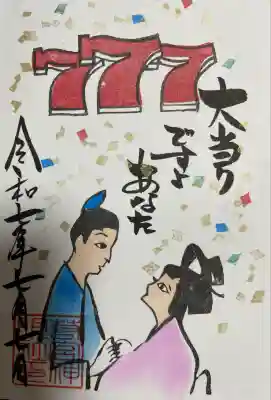 777
大当り
ですよ
あなた
令和七年七月七日